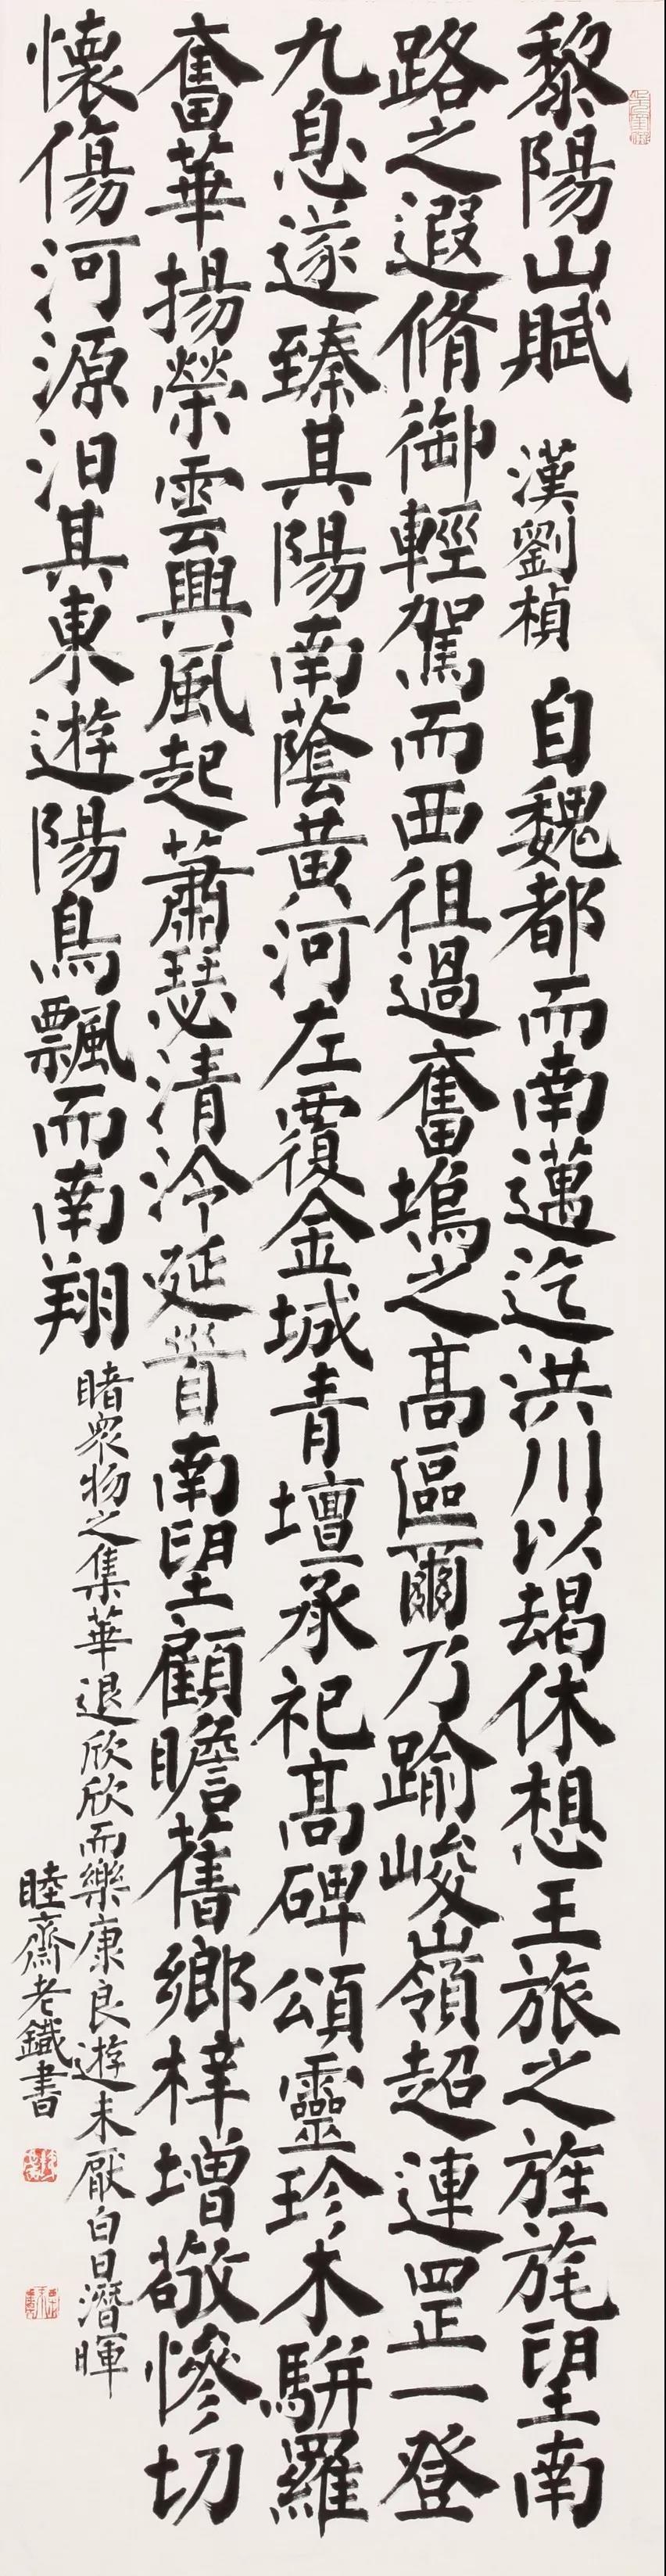 黎陽山賦　漢劉楨　自魏都而南邁迄洪川以朅休想王旅之旌旄望南
路之遐脩御輕駕而西徂過舊塢之高區爾乃踰峻嶺超連罡一登
九息遂臻其陽南蔭黄河左覆金城青壇承祀髙碑頌靈珍木駢羅
奮華揚榮雲興風起蕭瑟清泠延首南望顧瞻舊鄉梓增敬慘切
懷傷河源汩其東遊陽鳥飄而南翔
睹衆物之集華退欣欣而樂康良遊未厭白日潛暉
睦齋老鐵書